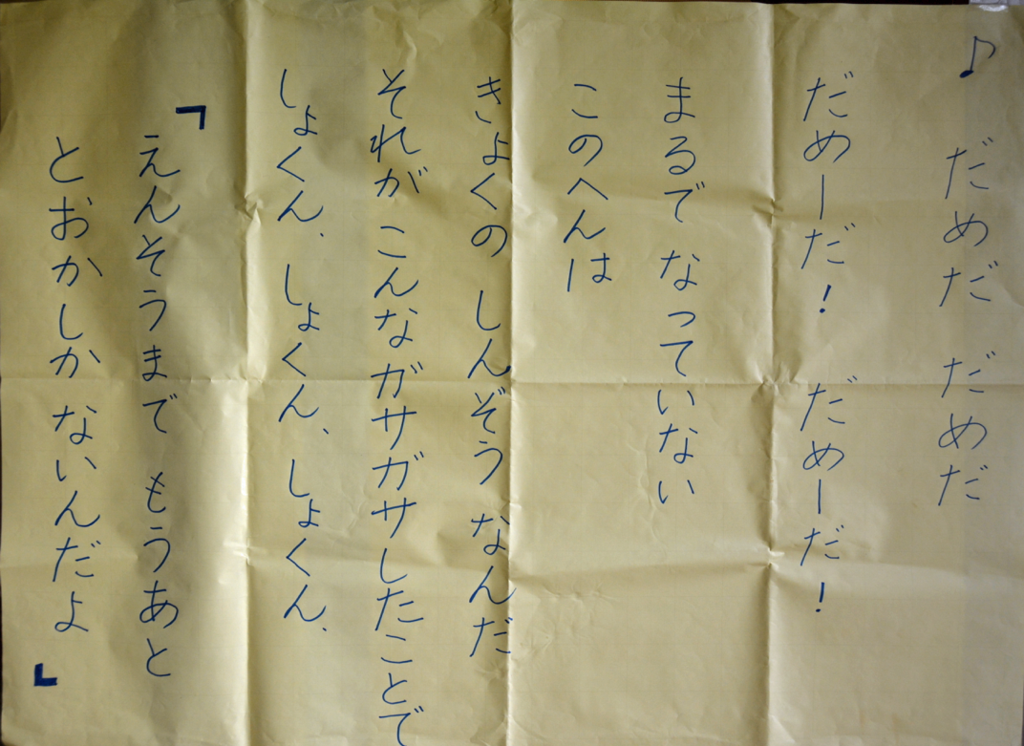 ♪ だめだ だめだ
だめーだ! だめーだ!
まるで なっていない
このへんは
きょくの しんぞう なんだ
それが こんなガサガサしたことで
しょくん、しょくん、しょくん、
「えんそうまで もうあと
とおかしか ないんだよ」